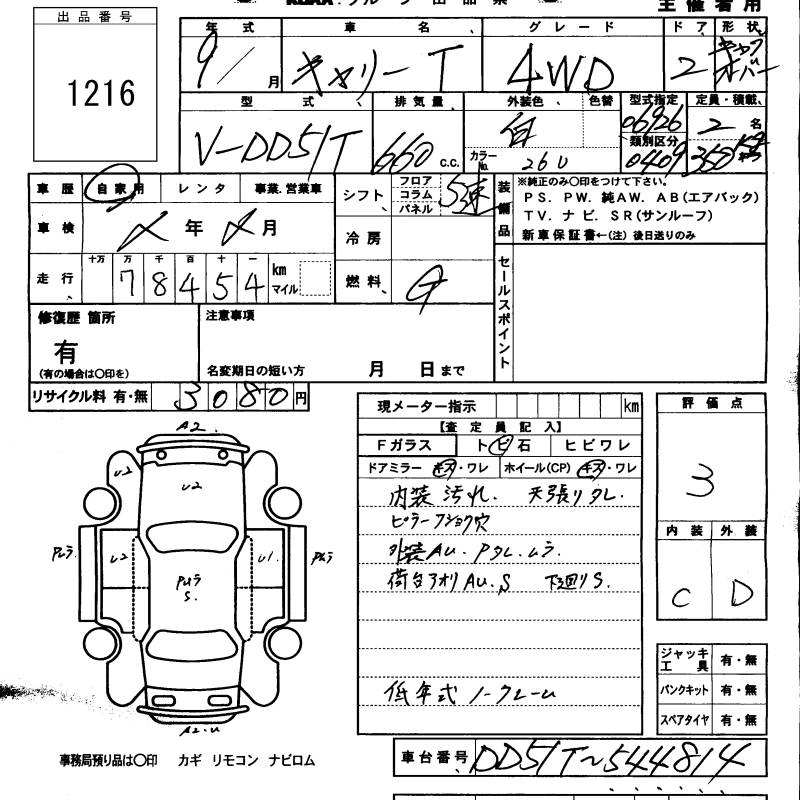 出品番号
1216
主催者用
年式 車名、 グレード ドア 形状、
9/ 月 キャリーT 4WD 2 キャブオーバー
型式、 排気量、 外装色、 色替 型式指定 定員・積載、
V-DD51T 660 c.c. 白 カラーNo. 26U 06926 2名
類別区分 0409 350 kg
車歴 自家用 レンタ 事業.営業車
シフト、 フロア コラム パネル 5速
装備品 ※純正のみ〇印をつけて下さい。
PS. PW. 純AW. AB(エアバック)
TV. ナビ. SR(サンルーフ)
新車保証書←(注) 後日送りのみ
車検 〆年 〆月
冷房
走行、 十万 万 千 百 十 一
78454 km マイル
燃料、 G
セールスポイント
修復歴 箇所
有
(有の場合は〇印を)
注意事項
名変期日の短い方 月 日まで
リサイクル料 有・無 3080円
現メーター指示 km
【査定員記入】
Fガラス トビ石 ヒビワレ
ドアミラー キズ・ワレ ホイール(CP) キズ・ワレ
内装汚れ. 天張りタレ.
ピラー フショク穴
外装AU. Pタレ.ムラ.
荷台アオリAU.S 下廻りS.
低年式 ノークレーム
評価点
3
内装 外装
C D
A2.
U2 U2
Pムラ U2 U1. Pムラ
PUラ
S.
A2.U
ジャッキ工具 有・無
パンクキット 有・無
スペアタイヤ 有・無
事務局預り品は〇印 カギ リモコン ナビロム
車台番号、 DD51T～544814